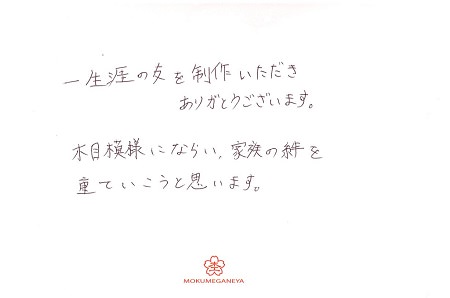 一生涯の友を制作いただき
ありがとうございます。
木目模様にならい、家族の絆を
重ていこうと思います。
MOKUMEGANEYA